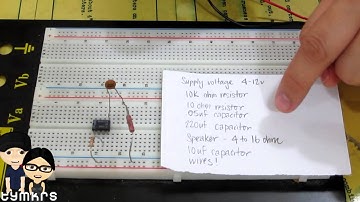 Va
Vb
Supply voltage 4-12v
10K ohm resistor
10 ohm resistor
.05uf capacitor
220uf capacitor
Speaker - 4 to 16 ohm
10uf capacitor
wires!
tymkrs